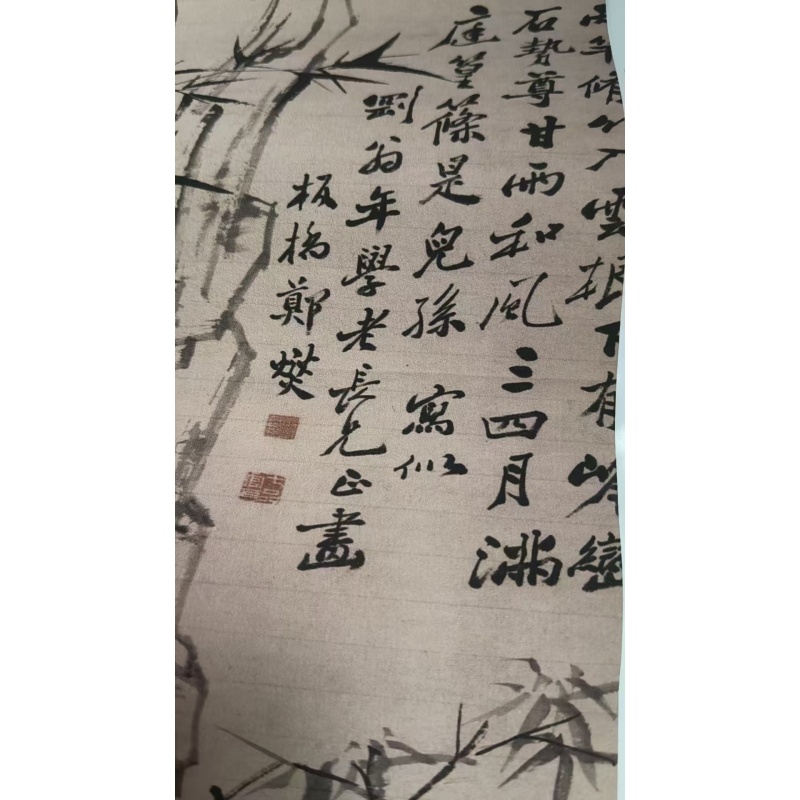 兩竿脩竹入雲根下有峰巒
石勢尊甘雨和風三四月滿
庭篁篠是兒孫 寫似
剛翁年學老長兄正畫
板橋鄭燮